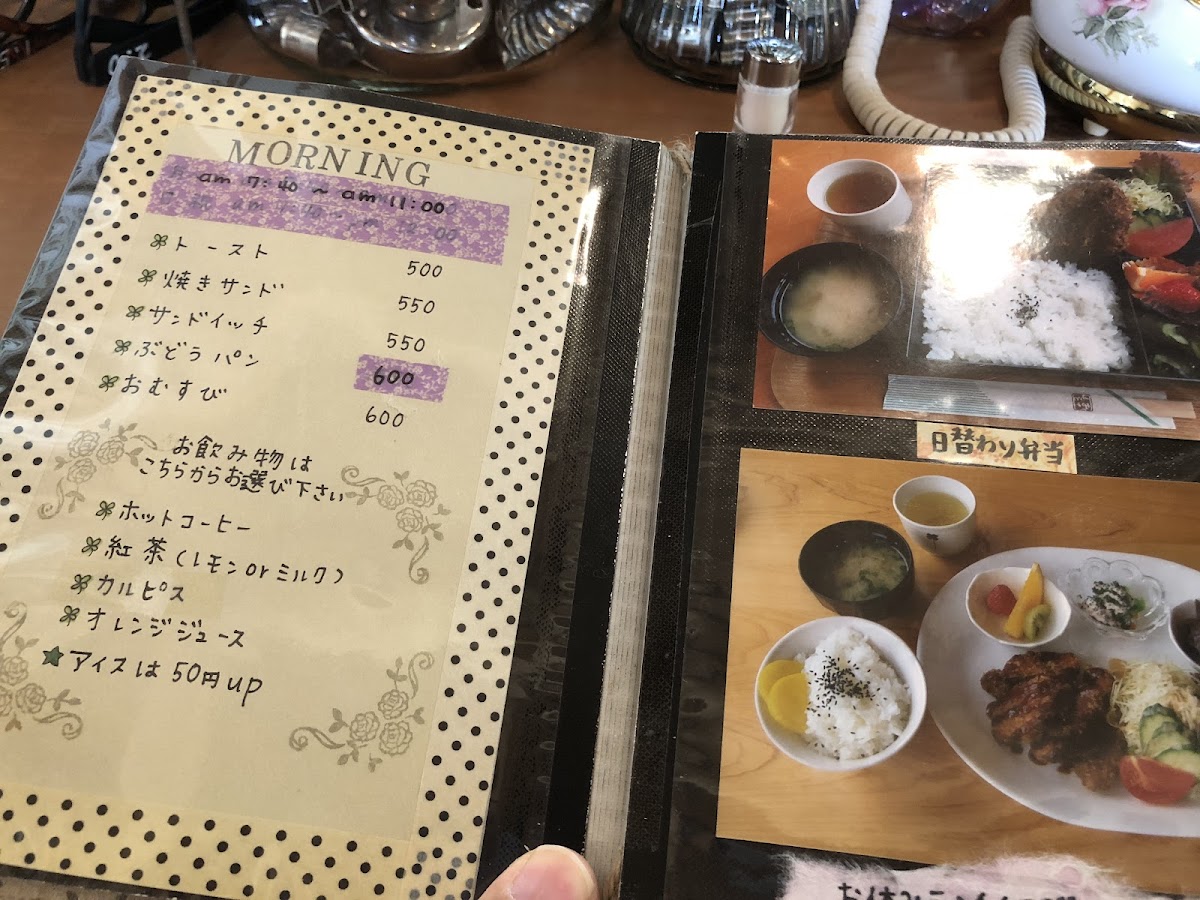 MORNING
am 7:40 ~ am 11:00
トースト 500
焼きサンド 550
サンドイッチ 550
ぶどうパン 600
おむすび 600
お飲み物は
こちらからお選び下さい
ホットコーヒー
紅茶(レモンorミルク)
カルピス
オレンジジュース
★アイスは50円up
日替わり弁当